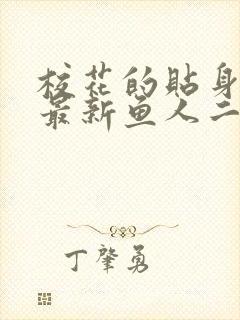 校花的贴身
最新鱼人二
丁肇勇